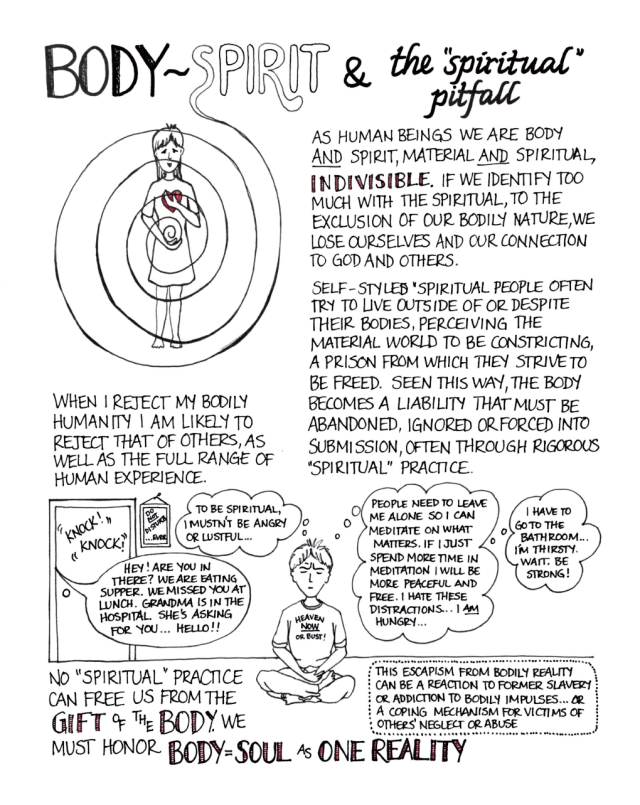 BODY~SPIRIT & the "spiritual"
pitfall
AS HUMAN BEINGS WE ARE BODY
AND SPIRIT, MATERIAL AND SPIRITUAL,
INDIVISIBLE. IF WE IDENTIFY TOO
MUCH WITH THE SPIRITUAL, TO THE
EXCLUSION OF OUR BODILY NATURE, WE
LOSE OURSELVES AND OUR CONNECTION
TO GOD AND OTHERS.
SELF-STYLED "SPIRITUAL PEOPLE OFTEN
TRY TO LIVE OUTSIDE OF OR DESPITE
THEIR BODIES, PERCEIVING THE
MATERIAL WORLD TO BE CONSTRICTING,
A PRISON FROM WHICH THEY STRIVE TO
BE FREED. SEEN THIS WAY, THE BODY
BECOMES A LIABILITY THAT MUST BE
ABANDONED, IGNORED OR FORCED INTO
SUBMISSION, OFTEN THROUGH RIGOROUS
"SPIRITUAL" PRACTICE.
WHEN I REJECT MY BODILY
HUMANITY I AM LIKELY TO
REJECT THAT OF OTHERS, AS
WELL AS THE FULL RANGE OF
HUMAN EXPERIENCE.
"KNOCK!"
"KNOCK!"
DO
NOT
DISTURB
...EVER
TO BE SPIRITUAL,
I MUSTN'T BE ANGRY
OR LUSTFUL...
HEY! ARE YOU IN
THERE? WE ARE EATING
SUPPER. WE MISSED YOU AT
LUNCH. GRANDMA IS IN THE
HOSPITAL. SHE'S ASKING
FOR YOU... HELLO!!
HEAVEN
NOW
OR BUST!
PEOPLE NEED TO LEAVE
ME ALONE SO I CAN
MEDITATE ON WHAT
MATTERS. IF I JUST
SPEND MORE TIME IN
MEDITATION I WILL BE
MORE PEACEFUL AND
FREE. I HATE THESE
DISTRACTIONS... I AM
HUNGRY...
I HAVE TO
GO TO THE
BATHROOM...
I'M THIRSTY.
WAIT. BE
STRONG!
NO "SPIRITUAL" PRACTICE
CAN FREE US FROM THE
GIFT of THE BODY. WE
MUST HONOR BODY=SOUL AS ONE REALITY
THIS ESCAPISM FROM BODILY REALITY
CAN BE A REACTION TO FORMER SLAVERY
OR ADDICTION TO BODILY IMPULSES... OR
A COPING MECHANISM FOR VICTIMS OF
OTHERS' NEGLECT OR ABUSE